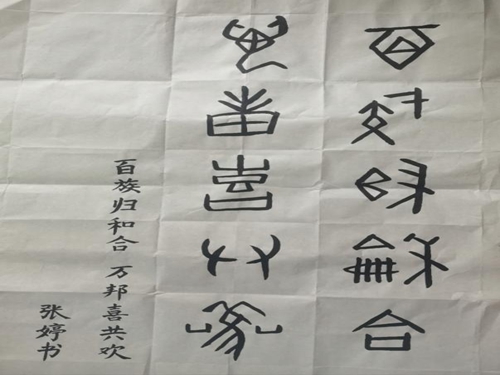 百族归和合
万邦喜共欢
百族归和合 万邦喜共欢
张婷书